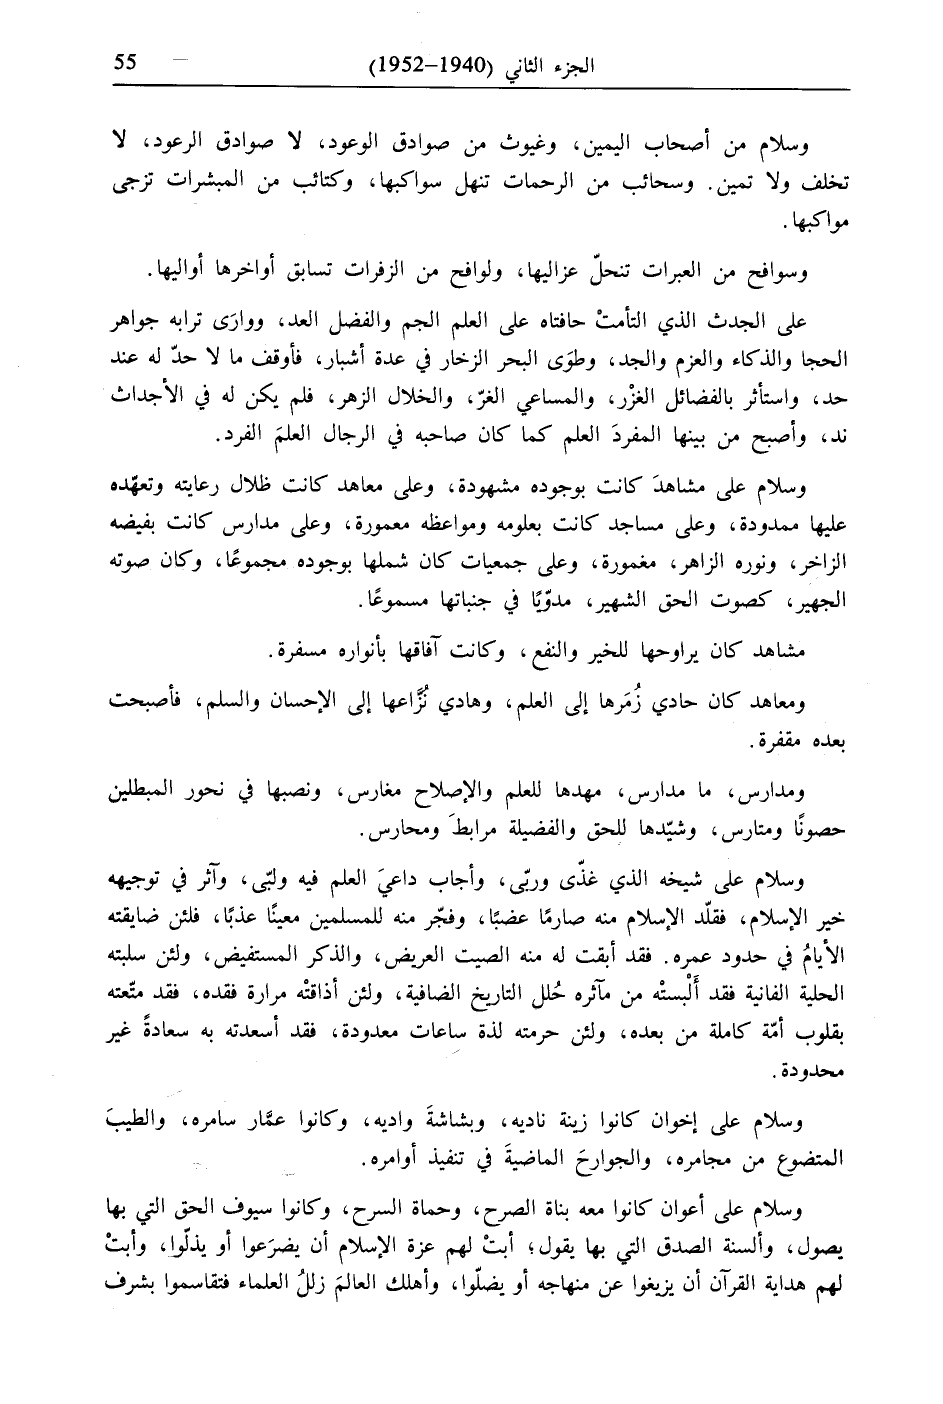 الجزء الثاني (1940–1952) – 55
وسلام من أصحاب اليمين، وغيوث من صوادق الوعود، لا صوادق الرعود، لا
تخلف ولا تمين. وسحائب من الرحمات تنهل سواكبها، وكتائب من المبشرات تزجى
مواكبها.
وسوافح من العبرات تنحلّ عزاليها، ولوافح من الزفرات تسابق أواخرها أواليها.
على الجدث الذي التأمتْ حافتاه على العلم الجم والفضل العد، ووارَى ترابه جواهر
الحجا والذكاء والعزم والجد، وطوَى البحر الزخار في عدة أشبار، فأوقف ما لا حدّ له عند
حد، واستأثر بالفضائل الغزْر، والمساعي الغرّ، والخلال الزهر، فلم يكن له في الأجداث
ند، وأصبح من بينها المفردَ العلم كما كان صاحبه في الرجال العلمَ الفرد.
وسلام على مشاهدَ كانت بوجوده مشهودة، وعلى معاهد كانت ظلال رعايته وتعهّده
عليها ممدودة، وعلى مساجد كانت بعلومه ومواعظه معمورة، وعلى مدارس كانت بفيضه
الزاخر، ونوره الزاهر، مغمورة، وعلى جمعيات كان شملها بوجوده مجموعًا، وكان صوته
الجهير، كصوت الحق الشهير، مدوّيًا في جنباتها مسموعًا.
مشاهد كان يراوحها للخير والنفع، وكانت آفاقها بأنواره مسفرة.
ومعاهد كان حادي زُمَرها إلى العلم، وهادي نُزَّاعها إلى الإحسان والسلم، فأصبحت
بعده مقفرة.
ومدارس، ما مدارس، مهدها للعلم والإصلاح مغارس، ونصبها في نحور المبطلين
حصونًا ومتارس، وشيّدها للحق والفضيلة مرابطَ ومحارس.
وسلام على شيخه الذي غذّى وربّى، وأجاب داعيَ العلم فيه ولبّى، وآثر في توجيهه
خير الإسلام، فقلّد الإسلام منه صارمًا عضبًا، وفجّر منه للمسلمين معينًا عذبًا، فلئن ضايقته
الأيامُ في حدود عمره. فقد أبقت له منه الصيت العريض، والذكر المستفيض، ولئن سلبته
الحلية الفانية فقد أَلْبستْه من مآثره حُلل التاريخ الضافية، ولئن أذاقتْه مرارة فقده، فقد متّعته
بقلوب أمّة كاملة من بعده، ولئن حرمته لذة ساعات معدودة، فقد أسعدته به سعادةً غير
محدودة.
وسلام على إخوان كانوا زينة ناديه، وبشاشةَ واديه، وكانوا عمَّار سامره، والطيبَ
المتضوع من مجامره، والجوارحَ الماضيةَ في تنفيذ أوامره.
وسلام على أعوان كانوا معه بناة الصرح، وحماة السرح، وكانوا سيوف الحق التي بها
يصول، وألسنة الصدق التي بها يقول؛ أبتْ لهم عزة الإسلام أن يضرَعوا أو يذلّوا، وأبتْ
لهم هداية القرآن أن يزيغوا عن منهاجه أو يضلّوا، وأهلك العالمَ زللُ العلماء فتقاسموا بشرف